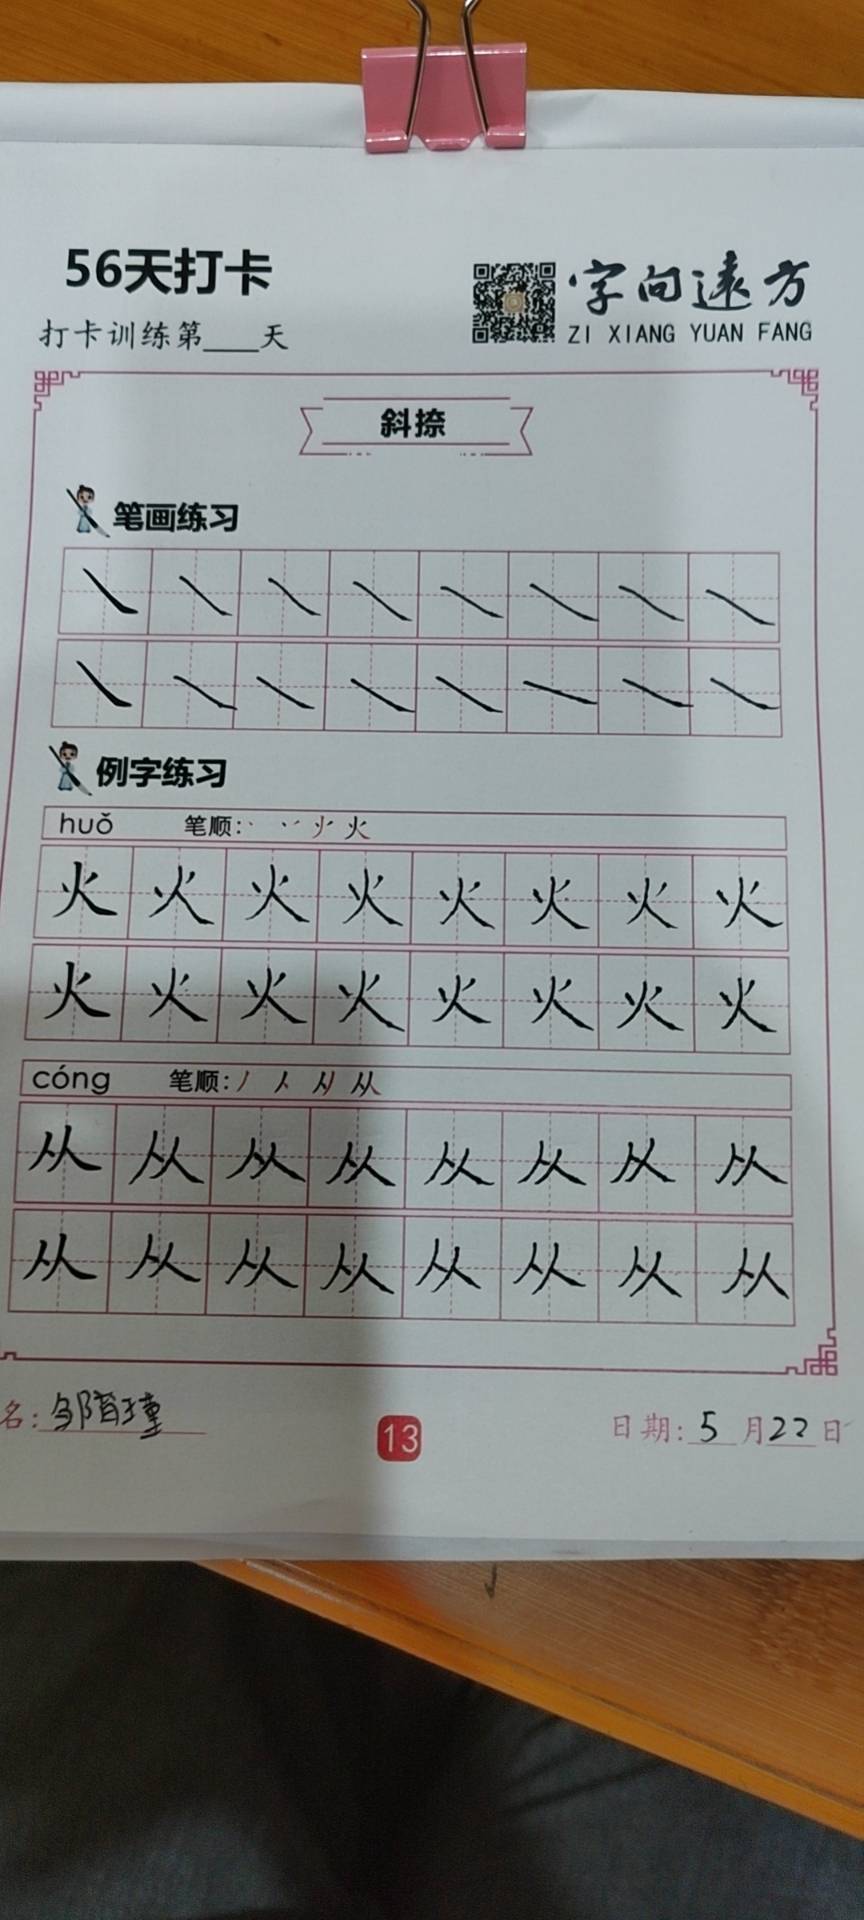 56天打卡
字向远方
打卡训练第____天
ZI XIANG YUAN FANG
斜捺
笔画练习
㇏ ㇏ ㇏ ㇏ ㇏ ㇏ ㇏ ㇏
㇏ ㇏ ㇏ ㇏ ㇏ ㇏ ㇏ ㇏
例字练习
huǒ 笔顺: 火
火 火 火 火 火 火 火 火
火 火 火 火 火 火 火 火
cóng 笔顺: 从
从 从 从 从 从 从 从 从
从 从 从 从 从 从 从 从
名: 邹
13
日期: 5 月 22 日